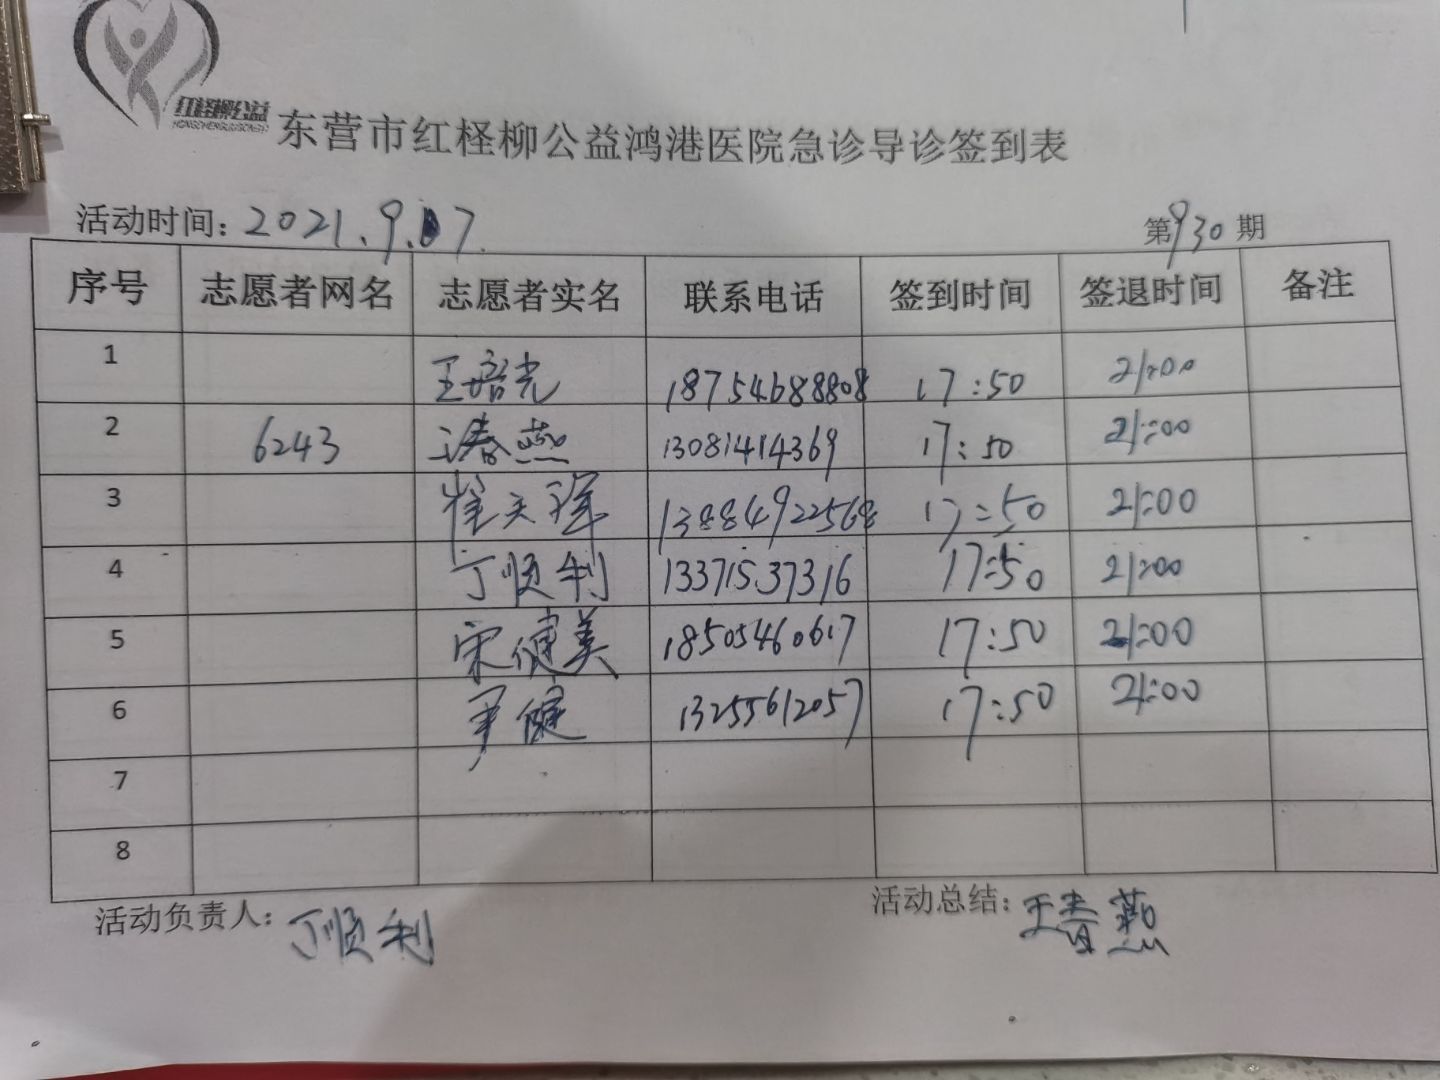 红柽柳公益
东营市红柽柳公益鸿港医院急诊导诊签到表
活动时间: 2021.9.07. 第930期
序号 志愿者网名 志愿者实名 联系电话 签到时间 签退时间 备注
1 王培光 18754688808 17:50 21:00
2 6243 13081414369 17:50 21:00
3 13884922568 17:50 21:00
4 丁顺利 13371537316 17:50 21:00
5 宋健美 18505460617 17:50 21:00
6 尹健 13255612057 17:50 21:00
7
8
活动负责人: 丁顺利 活动总结: 王春燕